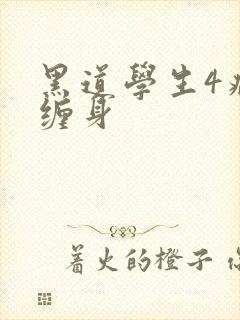 黑道學生4
缠身
着火的橙子